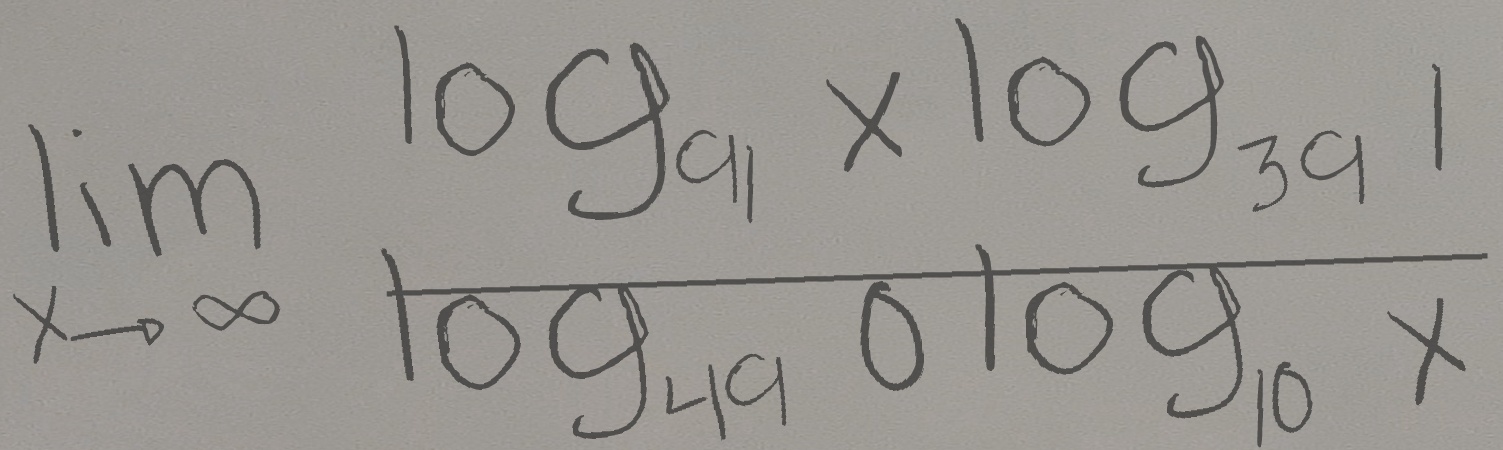 lim log₉₁ x log₃₉ 1
x→∞ log₄₉ 0 log₁₀ x